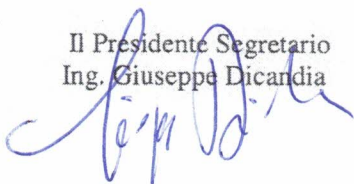 Il Presidente Segretario
Ing. Giuseppe Dicandia